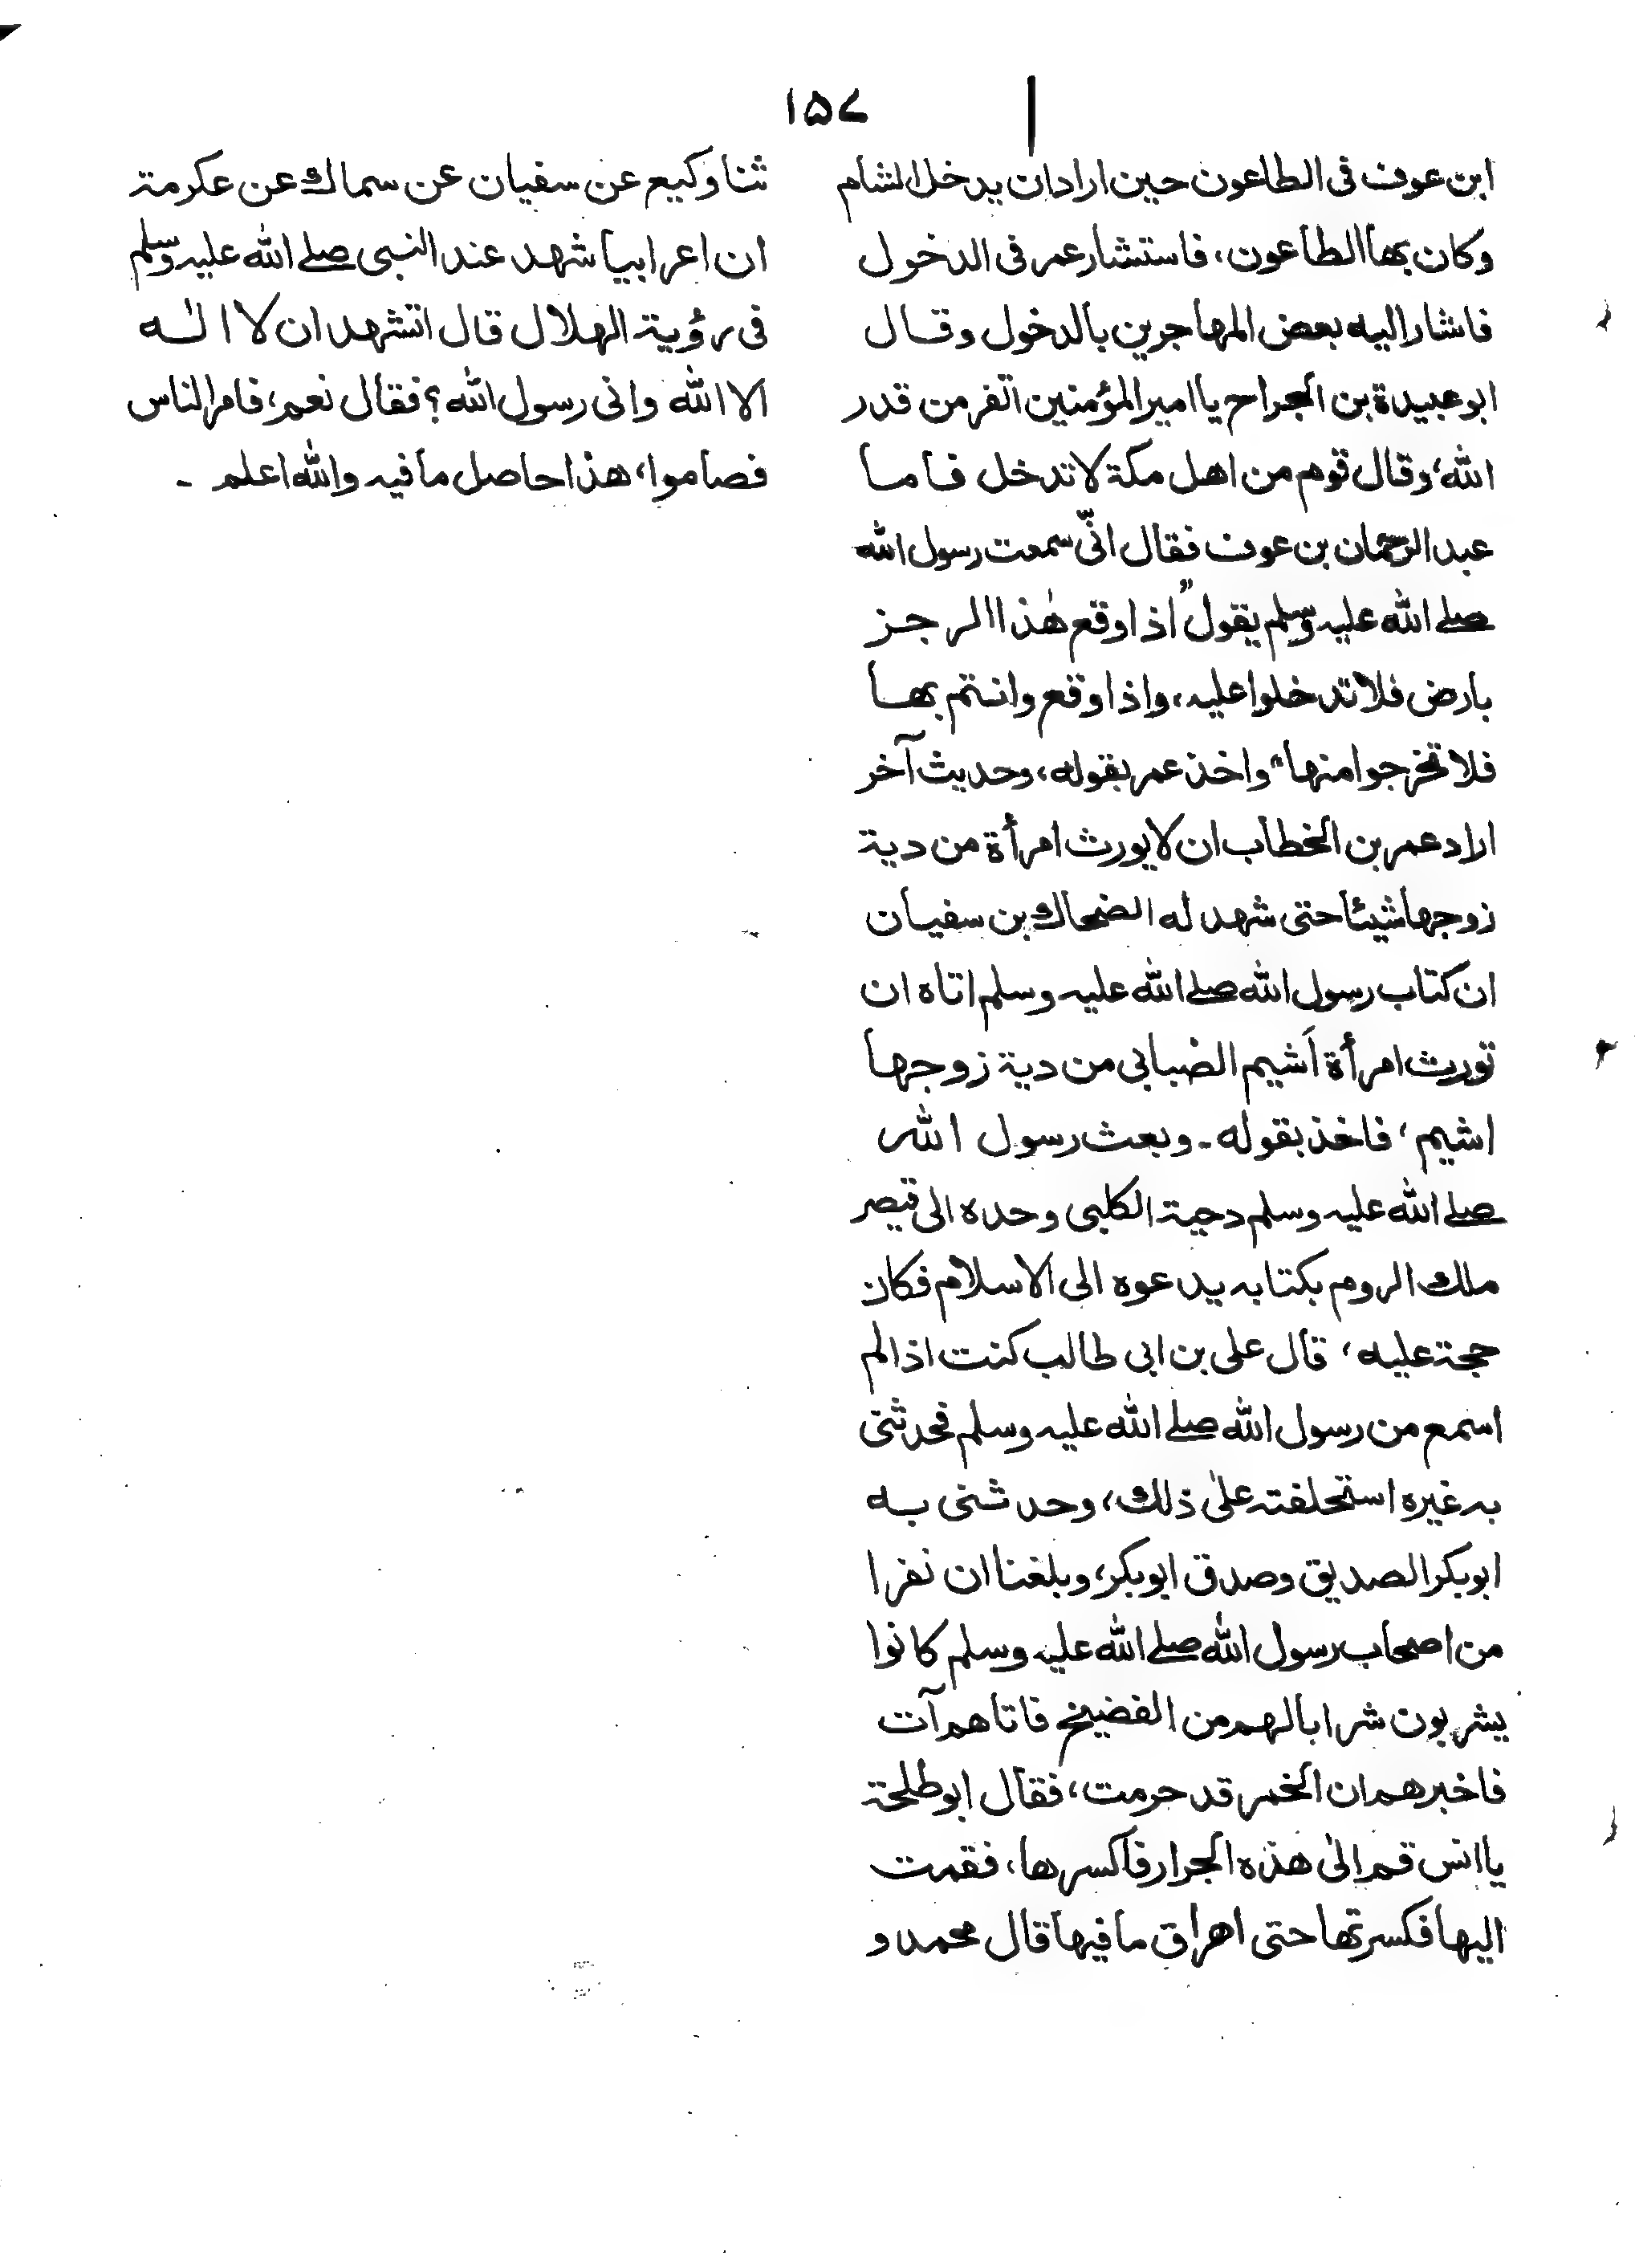 ۱۵۷
ابن عوف فی الطاعون حین اراد ان یدخل الشام
وکان بها الطاعون، فاستشار عمر فی الدخول
فاشار الیه بعض المهاجرین بالدخول وقال
ابو عبیدة بن الجراح یا امیر المؤمنین اتفر من قدر
الله، وقال قوم من اهل مکة لا تدخل فاما
عبد الرحمان بن عوف فقال انّی سمعت رسول الله
صلے الله علیہ وسلم یقول "اذا وقع هٰذا الرجز
بارض فلا تدخلوا علیہ، واذا وقع وانتم بها
فلا تخرجوا منها" واخذ عمر بقوله، وحدیث آخر
اراد عمر بن الخطاب ان لا یورث امرأة من دیة
زوجها شیئا حتی شهد له الضحاك بن سفیان
ان کتاب رسول الله صلے الله علیہ وسلم اتاه ان
تورث امرأة اَشیم الضبابی من دیة زوجها
اشیم، فاخذ بقوله۔ وبعث رسول الله
صلے الله علیہ وسلم دحیة الکلبی وحده الی قیصر
ملك الروم بکتابہ یدعوه الی الاسلام فکان
حجة علیه، قال علی بن ابی طالب کنت اذا لم
اسمع من رسول الله صلے الله علیہ وسلم فحدثنی
بہ غیره استحلفتہ علیٰ ذلك، وحدثنی به
ابوبکر الصدیق وصدق ابوبکر، وبلغنا ان نفرا
من اصحاب رسول الله صلے الله علیہ وسلم کانوا
یشربون شرابا لهم من الفضیخ فاتاهم آت
فاخبرهم ان الخمر قد حرمت، فقال ابو طلحة
یا انس قم الیٰ هذه الجرار فاکسرها، فقمت
الیها فکسرتها حتی اهراق ما فیها قال محمد و
ثنا وکیع عن سفیان عن سماك عن عکرمة
ان اعرابیا شهد عند النبی صلے الله علیہ وسلم
فی رؤیة الهلال قال اتشهد ان لا الٰه
الا الله وانی رسول الله؟ فقال نعم، فامر الناس
فصاموا، هذا حاصل ما فیہ والله اعلم ۔